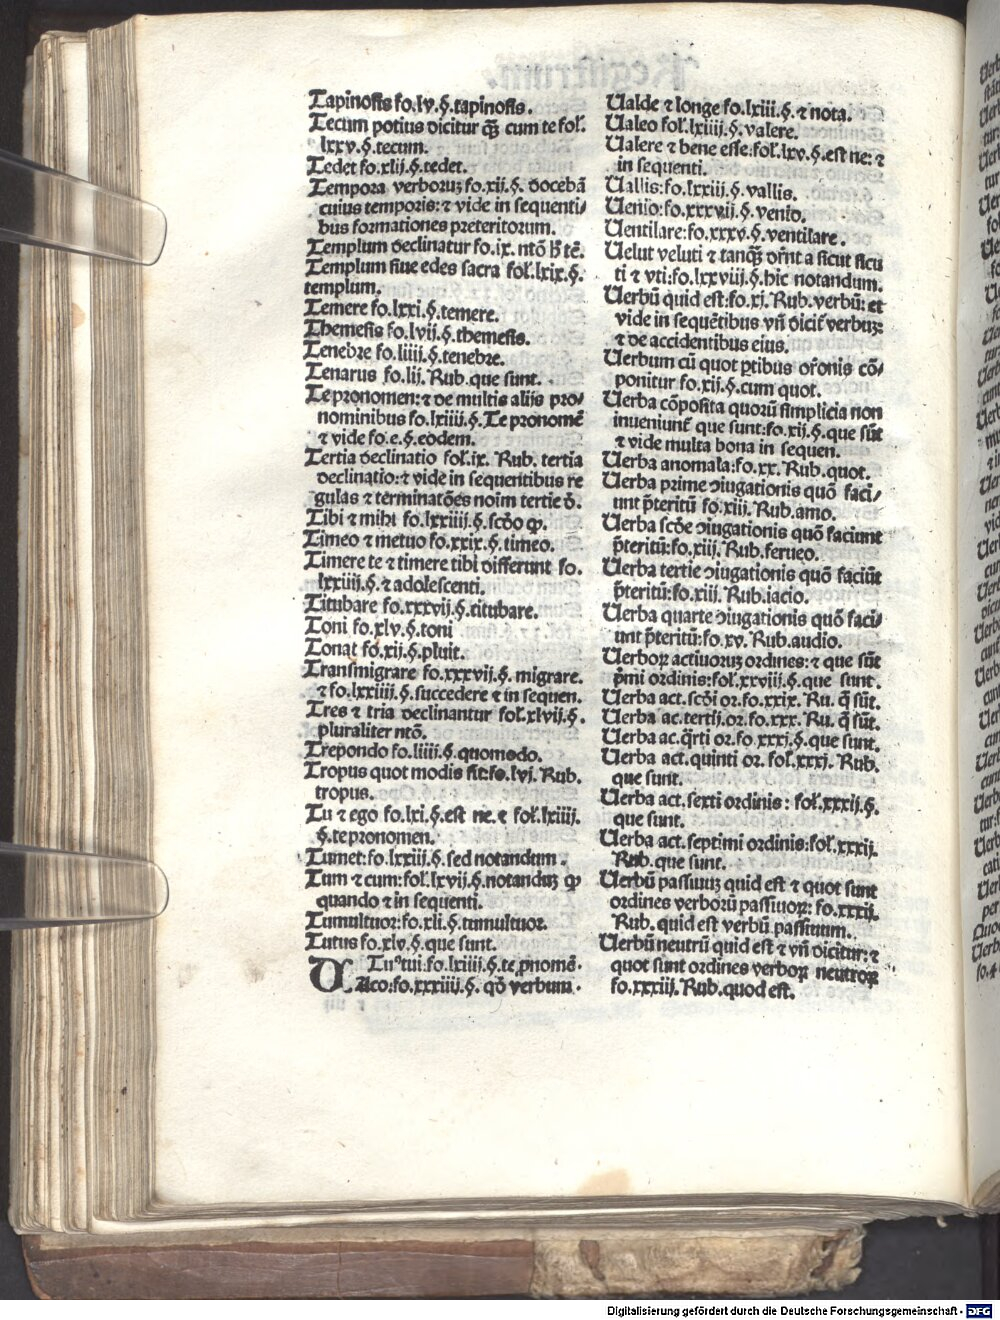 Tapinosis fo.lv.§.tapinosis.
Tecum potius dicitur qꝫ̃ cum te fol.
lxxv.§.tecum.
Tedet fo.xlij.§.tedet.
Tempora verboruꝫ fo.xij.§. docebā
cuius temporis: ⁊ vide in sequenti⸗
bus formationes preteritorum.
Templum declinatur fo.ix. ntō
Templum siue edes sacra fol.lxix.§.
templum.
Temere fo.lxxi.§.temere.
Themesis fo.lvii.§.themesis.
Tenebre fo.liiii.§.tenebre.
Tenarus fo.lii. Rub.que sunt.
Te pronomen: ⁊ de multis alijs pro⸗
nominibus fo.lxiiii.§.Te pronomē
⁊ vide fo.e.§.eodem.
Tertia declinatio fol.ix. Rub. tertia
declinatio: ⁊ vide in sequentibus re
gulas ⁊ terminatōes noīm tertie d̄.
Tibi ⁊ mihi fo.lxxiiii.§.scd̄o ꝙ.
Timeo ⁊ metuo fo.xxix.§.timeo.
Timere te ⁊ timere tibi differunt fo.
lxxiiii.§.⁊ adolescenti.
Titubare fo.xxxvii.§.titubare.
Toni fo.xlv.§.toni
Tonat fo.xij.§.pluit.
Transmigrare fo.xxxvii.§. migrare.
⁊ fo.lxxiiii.§.succedere ⁊ in sequen.
Tres ⁊ tria declinantur fol.xlvij.§.
pluraliter ntō.
Trepondo fo.liiii.§.quomodo.
Tropus quot modis fit:fo.lvi. Rub.
tropus.
Tu ⁊ ego fo.lxi.§.est ne.⁊ fol.lxiiij.
§.te pronomen.
Tumet:fo.lxiiij.§.sed notandum.
Tum ⁊ cum:fol.lxvij.§.notanduꝫ ꝙ
quando ⁊ in sequenti.
Tumultuor:fo.xli.§.tumultuor.
Tutus fo.xlv.§.que sunt.
Tuꝰ tui:fo.lxiiii.§.te ꝓnomē.
UAco:fo.xxxiiii.§. qō verbum.
Ualde ⁊ longe fo.lxiii.§.⁊ nota.
Ualeo fol.lxiiij.§.valere.
Ualere ⁊ bene esse:fol.lxv.§.est ne: ⁊
in sequenti.
Uallis:fo.lxxiii.§.vallis.
Uenio:fo.xxxvii.§.venio.
Uentilare:fo.xxxv.§.ventilare.
Uelut veluti ⁊ tanqꝫ̃ dr̄nt a sicut sicu
ti ⁊ vti:fo.lxxviii.§.hic notandum.
Uerbū quid est:fo.xi. Rub.verbū: et
vide in sequētibus vn̄ dicit᷑ verbuꝫ:
⁊ de accidentibus eius.
Uerbum cū quot ꝑtibus or̄onis cō⸗
ponitur fo.xij.§.cum quot.
Uerba cōposita quorū simplicia non
inueniunt᷑ que sunt:fo.xij.§.que sūt
⁊ vide multa bona in sequen.
Uerba anomala:fo.xx. Rub.quot.
Uerba prime ꝯiugationis quō faci⸗
unt p̄teritū fo.xiii. Rub.amo.
Uerba scd̄e ꝯiugationis quō faciunt
p̄teritū:fo.xiij. Rub.ferueo.
Uerba tertie ꝯiugationis quō faciūt
p̄teritū:fo.xiii. Rub.iacio.
Uerba quarte ꝯiugationis quō faci⸗
unt p̄teritū:fo.xv. Rub.audio.
Uerboꝝ actiuoruꝫ ordines: ⁊ que sūt
p̄mi ordinis:fol.xxviii.§.que sunt.
Uerba act.scd̄i or.fo.xxix. Ru. q̄ sūt.
Uerba ac.tertij.or.fo.xxx. Ru. q̄ sūt.
Uerba ac.q̄rti or.fo xxxj.§.que sunt.
Uerba act.quinti or. fol.xxxj. Rub.
que sunt.
Uerba act.sexti ordinis : fol.xxxij.§.
que sunt.
Uerba act.septimi ordinis:fol.xxxij.
Rub.que sunt.
Uerbū passiuuꝫ quid est ⁊ quot sunt
ordines verborū passiuoꝝ: fo.xxxij.
Rub. quid est verbū passiuum.
Uerbū neutrū quid est ⁊ vn̄ dicitur: ⁊
quot sunt ordines verboꝝ neutroꝝ
fo.xxxiij. Rub.quod est.
Digitalisierung gefördert durch die Deutsche Forschungsgemeinschaft - DFG